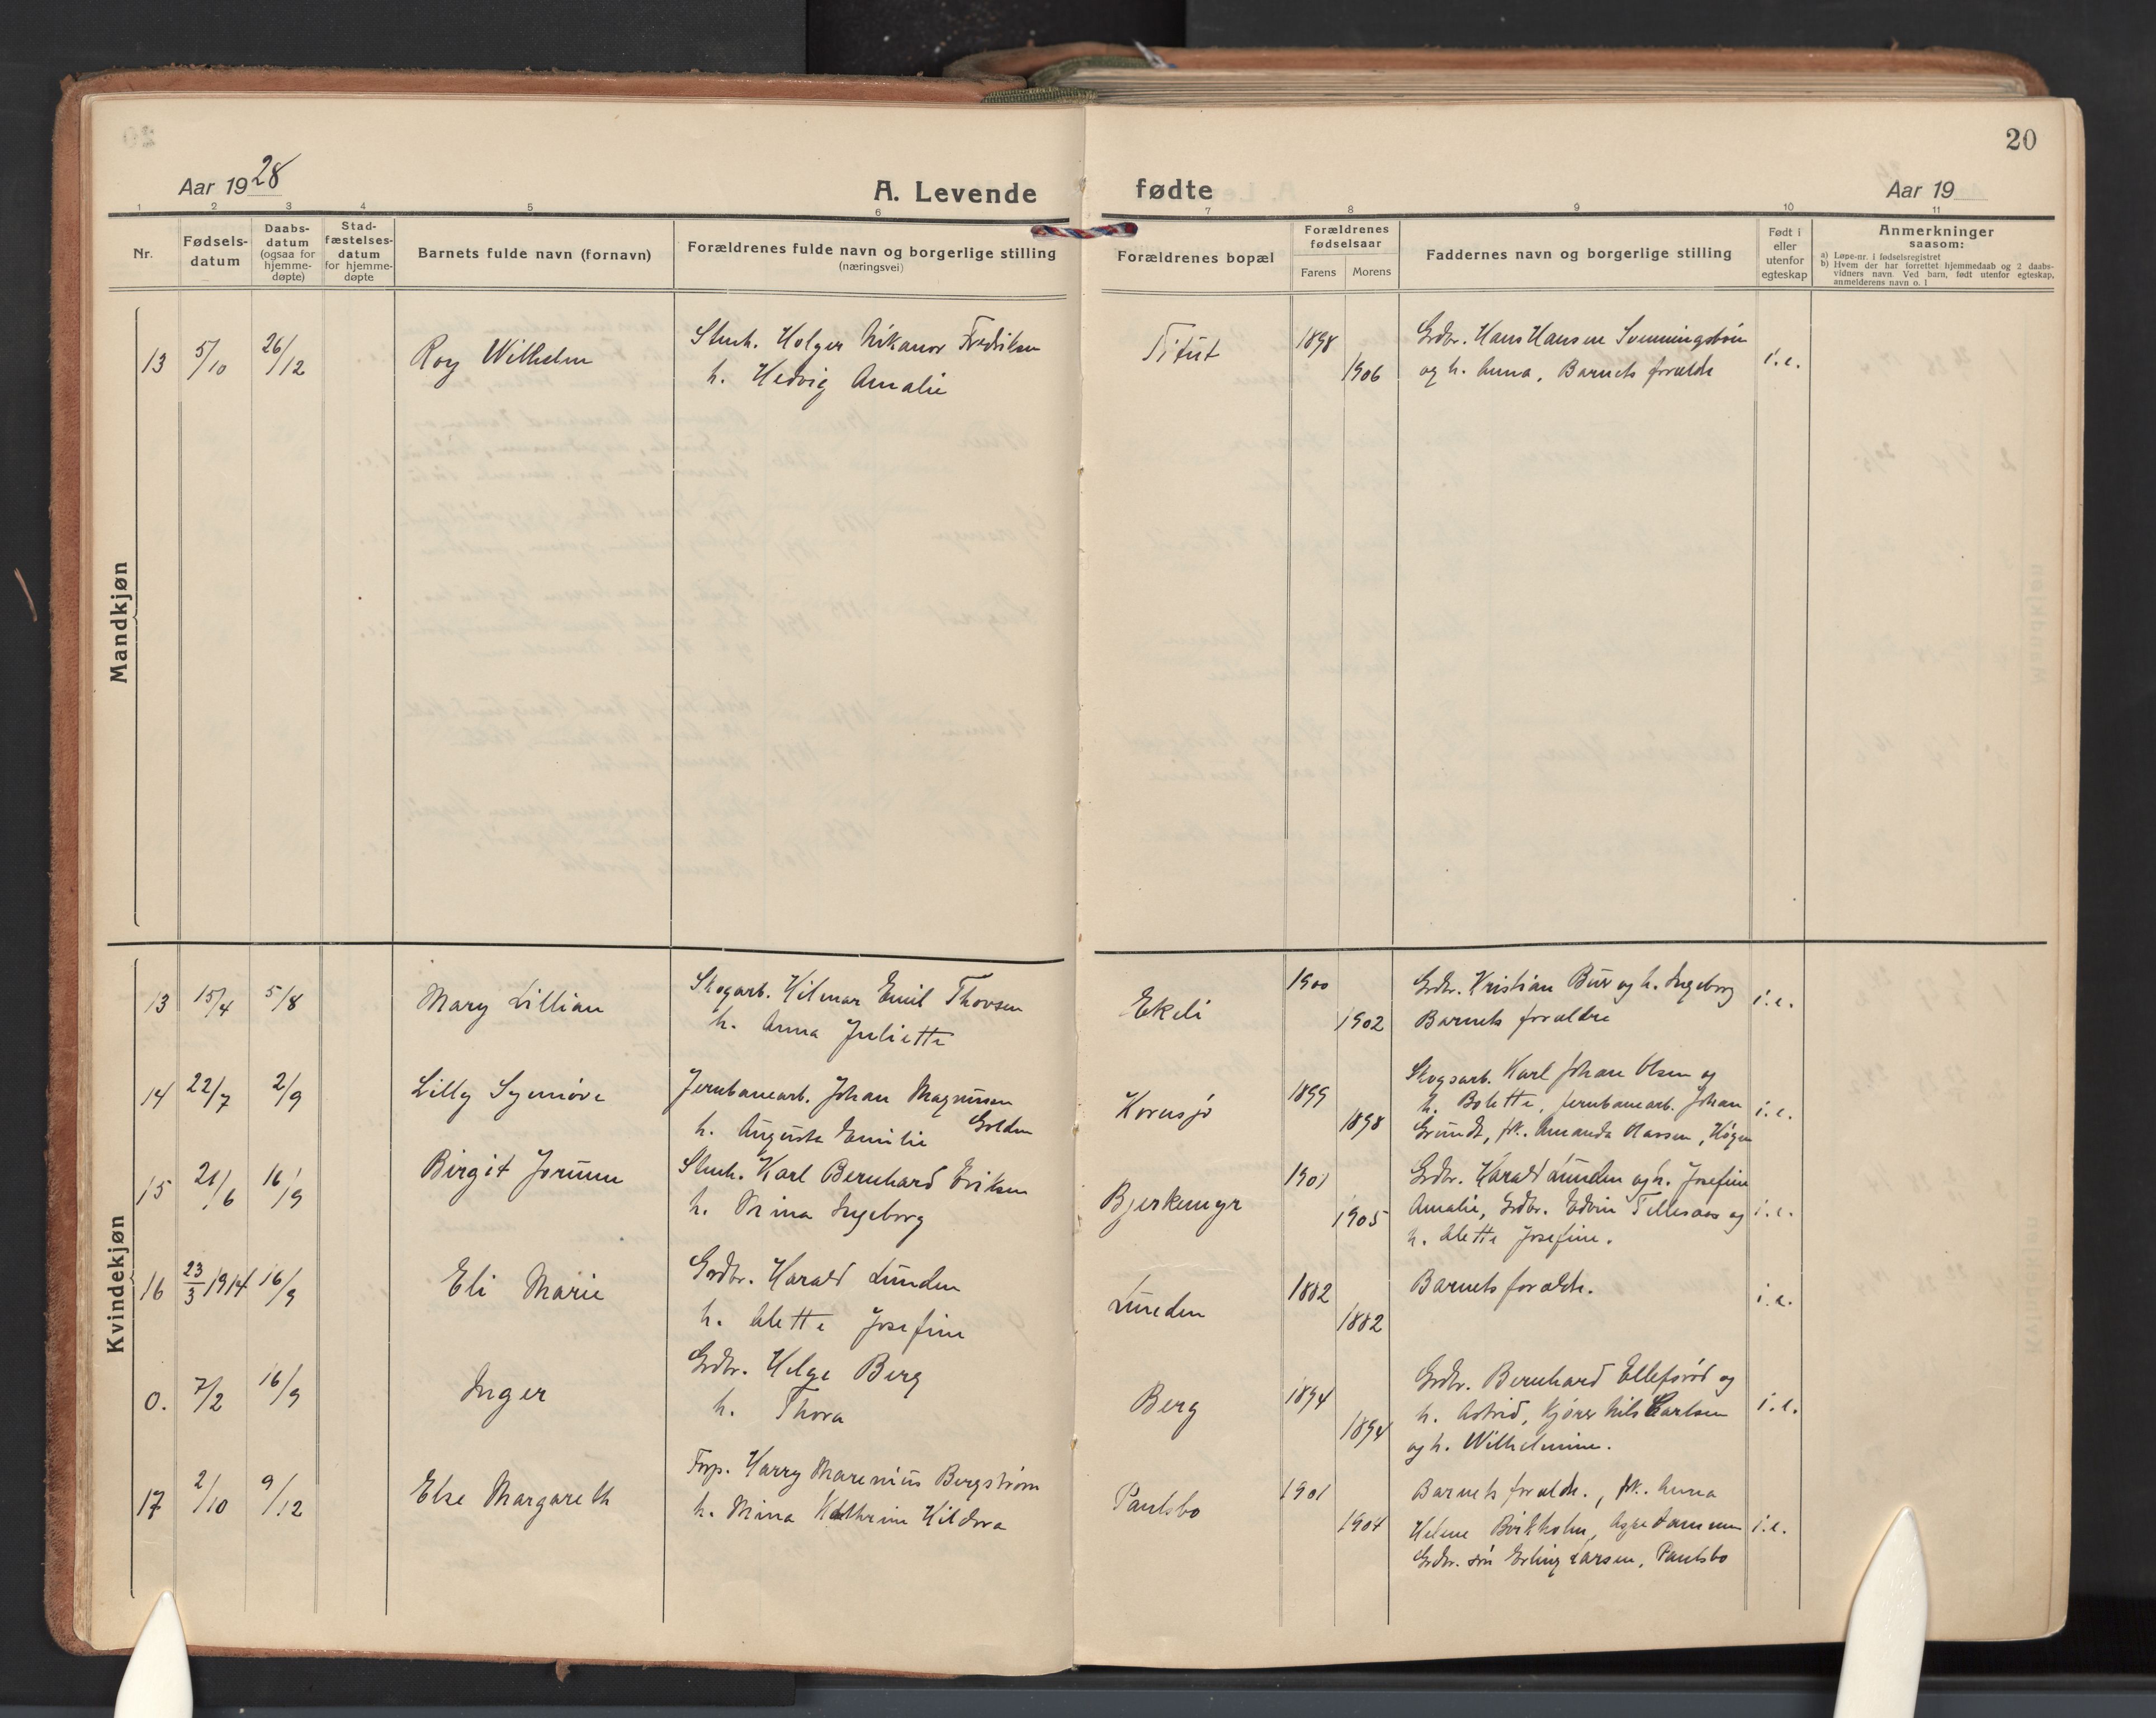 20
Aar 1928
A. Levende fødte
Aar 19
1 2 3 4 5 6 7 8 9 10 11
Nr.
Fødsels-
datum
Daabs-
datum
(ogsaa for
hjemme-
døpte)
Stad-
fæstelses-
datum
for hjemme-
døpte
Barnets fulde navn (fornavn)
Forældrenes fulde navn og borgerlige stilling
(næringsvei)
Forældrenes bopæl
Forældrenes
fødselsaar
Farens Morens
Faddernes navn og borgerlige stilling
Født i
eller
utenfor
egteskap
Anmerkninger
saasom:
a) Løpe-nr. i fødselsregistret
b) Hvem der har forrettet hjemmedaab og 2 daabs-
vidners navn. Ved barn, født utenfor egteskap,
anmelderens navn o. l
Mandkjøn
13 5/10 26/12 Roy Wilhelm
Stenh. Holger Nikanor Fredriksen
h. Hedvig Amalie
Titut 1898 1906
Grdbr. Hans Hansen Svenningsbøen
og h. Anna, Barnets forældre
i.e.
Kvindekjøn
13 15/4 5/8 Mary Lillian
Skogarb. Hilmar Emil Thovsen
h. Anna Juliette
Ekeli 1900 1902
Grdbr. Kristian Buer og h. Ingeborg
Barnets forældre
i.e.
14 22/7 2/9 Lilly Synnøve
Jernbanearb. Johan Magnussen
Golden
h. Augusta Emilie
Kornsjø 1899 1898
Skogsarb. Karl Johan Olsen og
h. Bolette, jernbanearb. Johan
Grundt, frk. Amanda Klassen,
i.e.
15 21/6 16/9 Birgit Jorunn
Stenh. Karl Bernhard Eriksen
h. Mina Ingeborg
Bjerkemyr 1901 1905
Grdbr. Harald Lunden og h. Josefine
Amalie, Grdbr. Edvin Tellesaas og
h. Alette Josefine.
i.e.
16 23/3 1914 16/9 Eli Marie
Grdbr. Harald Lunden
h. Alette Josefine
Lunden 1882 1882
Barnets forældre.
i.e.
0. 7/2 16/9 Inger
Grdbr. Helge Berg
h. Thora
Berg 1894 1894
Grdbr. Bernhard Ellefsrød og
h. Astrid, Kjører Nils Carlsen
og h. Wilhelmine.
i.e.
17 2/10 9/12 Else Margareth
Frp. Harry Marenius Bergstrøm
h. Mina Kathrine Hildora
Paulsbo 1901 1904
Barnets forældr., frk. Anna
Helene Børkholm, Aspedammen
Grdbr. søn Erling Larsen, Paulsbo
i.e.